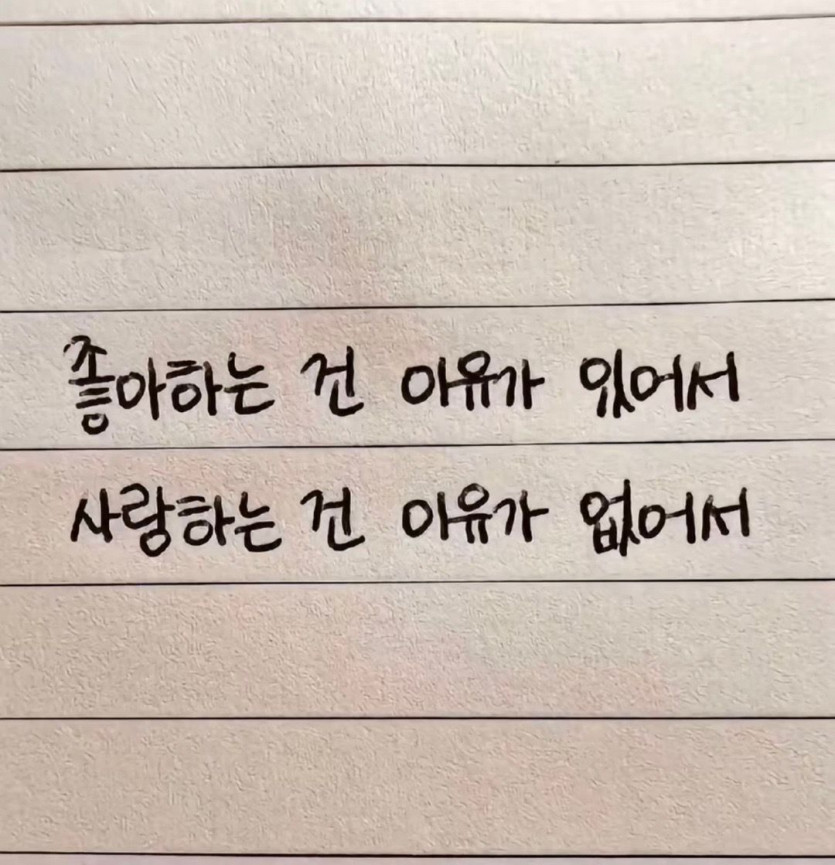 좋아하는 건 이유가 있어서
사랑하는 건 이유가 없어서